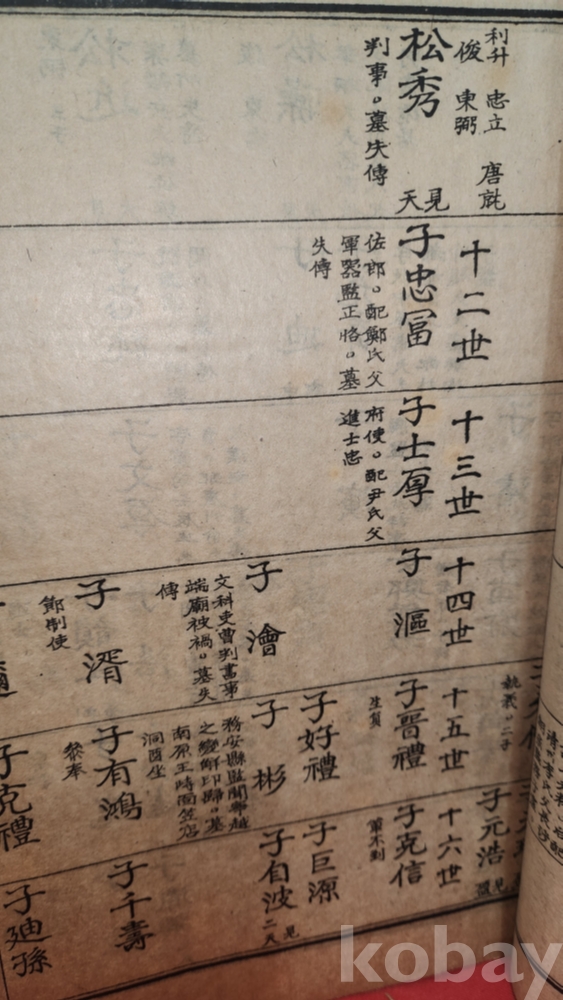 利升 忠立 唐
俊 東弼
松秀
判事。墓失傳
見
天
十二世
子忠冨
佐郎。配鄭氏父
軍器監正恪。墓
失傳
十三世
子士厚
府使。配尹氏父
進士忠
十四世
子漚
子澮
文科吏曹判書事
端廟被禍。墓失
傳
子湑
節制使
執義。二子
十五世
子晋禮
生員
子好禮
子彬
務安縣監聞
之變解印歸。墓
南原王時面
洞酉坐
子有鴻
參奉
子克禮
子元浩
見
十六世
子克信
子巨源
子自波
見
二天
子千壽
子廸孫
kobay